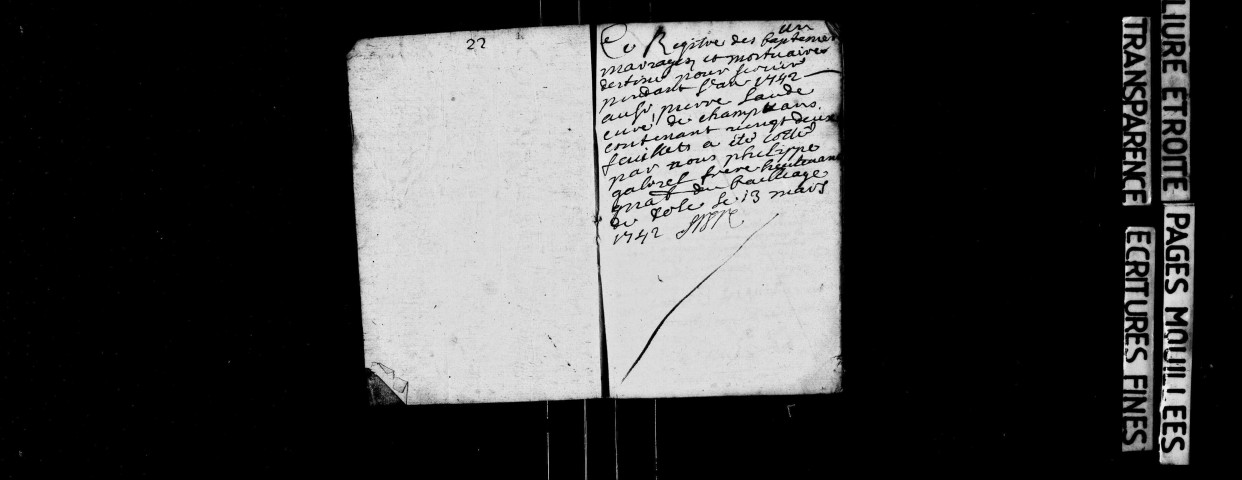 22
un
Ce Registre des baptemes
mariages et mortuaires
destiné pour servir
pendant l'an 1742
au Sr pierre
curé de champvans
contenant vingt deux
feuillets a été cotté
par nous philippe
gabriel frere lieutenant
gnal du bailliage
de Dole le 13 mars
1742
LIURE ETROITE
TRANSPARENCE
PAGES MOUILLEES
ECRITURES FINES